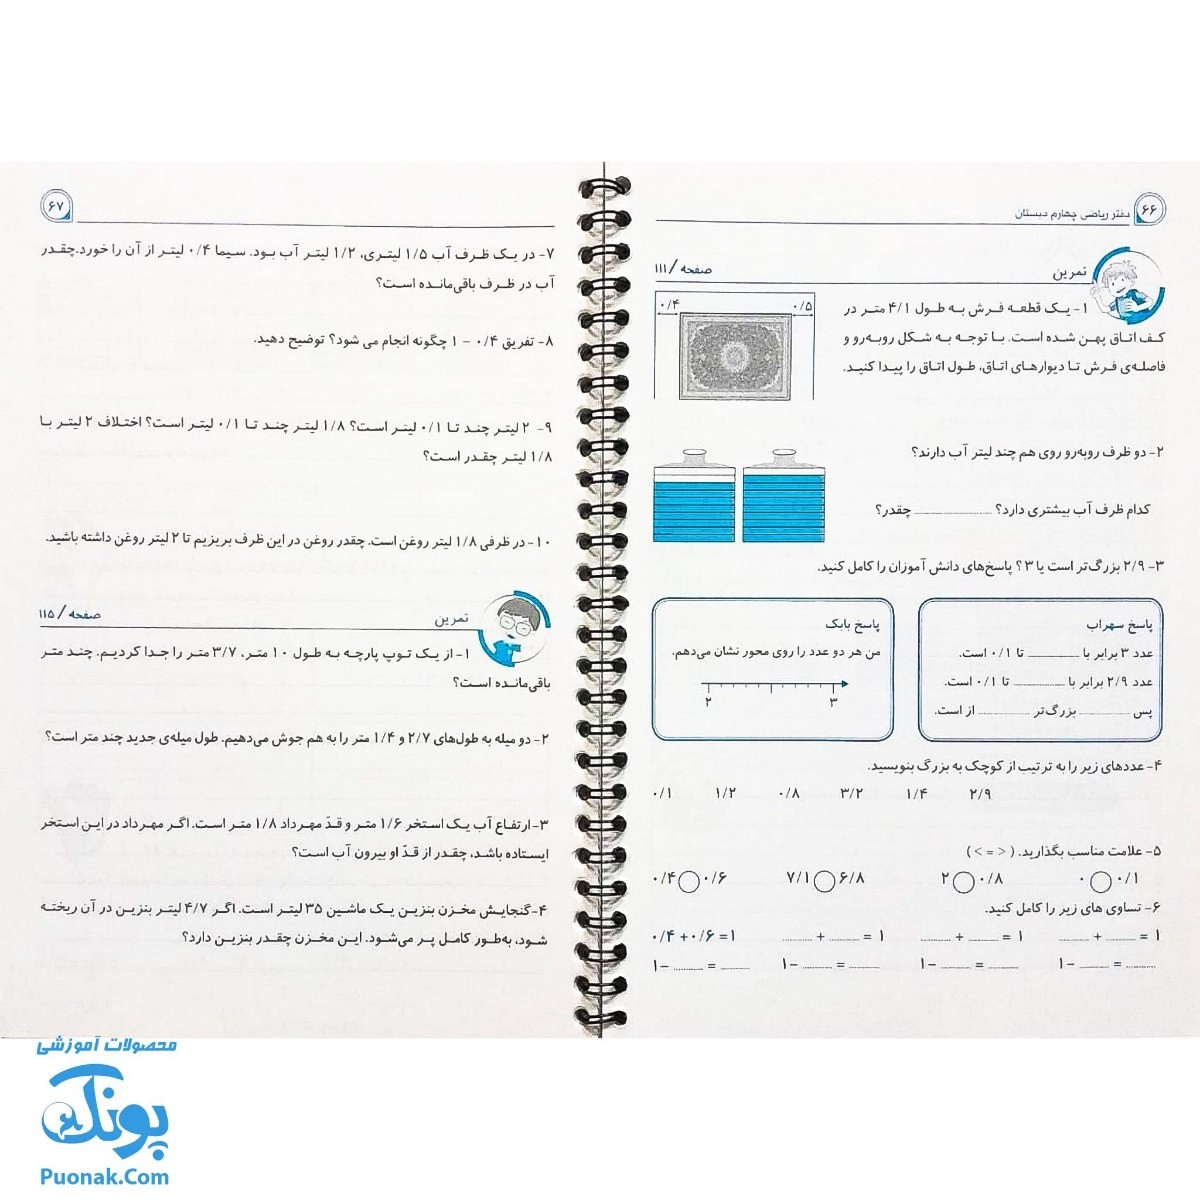 ۶۶ دفتر ریاضی چهارم دبستان
تمرین صفحه / ۱۱۱
۱- یک قطعه فرش به طول ۴/۱ متر در
کف اتاق پهن شده است. با توجه به شکل روبه‌رو و
فاصله‌ی فرش تا دیوارهای اتاق، طول اتاق را پیدا کنید.
۰/۴ ۰/۵
۲- دو ظرف روبه‌رو روی هم چند لیتر آب دارند؟
کدام ظرف آب بیشتری دارد؟ ............ چقدر؟
۳- ۲/۹ بزرگ‌تر است یا ۳؟ پاسخ‌های دانش آموزان را کامل کنید.
پاسخ سهراب
عدد ۳ برابر با ............ تا ۰/۱ است.
عدد ۲/۹ برابر با ............ تا ۰/۱ است.
پس ............ بزرگ‌تر ............ از است.
پاسخ بابک
من هر دو عدد را روی محور نشان می‌دهم.
۲ ۳
۴- عددهای زیر را به ترتیب از کوچک به بزرگ بنویسید.
۰/۱ ۱/۲ ۰/۸ ۳/۲ ۱/۴ ۲/۹
۵- علامت مناسب بگذارید. ( < = > )
۰/۴ ○ ۰/۶ ۷/۱ ○ ۶/۸ ۲ ○ ۰/۸ ۰ ○ ۰/۱
۶- تساوی های زیر را کامل کنید.
۰/۴ + ۰/۶ = ۱ ........ + ........ = ۱ ........ + ........ = ۱ ........ + ........ = ۱
۱- ........ = ........ ۱- ........ = ........ ۱- ........ = ........ ۱- ........ = ........
۶۷
۷- در یک ظرف آب ۱/۵ لیتری، ۱/۲ لیتر آب بود. سیما ۰/۴ لیتر از آن را خورد.چقدر
آب در ظرف باقی‌مانده است؟
۸- تفریق ۰/۴ − ۱ چگونه انجام می شود؟ توضیح دهید.
۹- ۲ لیتر چند تا ۰/۱ لیتر است؟ ۱/۸ لیتر چند تا ۰/۱ لیتر است؟ اختلاف ۲ لیتر با
۱/۸ لیتر چقدر است؟
۱۰- در ظرفی ۱/۸ لیتر روغن است. چقدر روغن در این ظرف بریزیم تا ۲ لیتر روغن داشته باشید.
تمرین صفحه / ۱۱۵
۱- از یک توپ پارچه به طول ۱۰ متر، ۳/۷ متر را جدا کردیم. چند متر
باقی‌مانده است؟
۲- دو میله به طول‌های ۲/۷ و ۱/۴ متر را به هم جوش می‌دهیم. طول میله‌ی جدید چند متر است؟
۳-ارتفاع آب یک استخر ۱/۶ متر و قدّ مهرداد ۱/۸ متر است. اگر مهرداد در این استخر
ایستاده باشد، چقدر از قدّ او بیرون آب است؟
۴-گنجایش مخزن بنزین یک ماشین ۳۵ لیتر است. اگر ۴/۷ لیتر بنزین در آن ریخته
شود، به‌طور کامل پر می‌شود. این مخزن چقدر بنزین دارد؟
محصولات آموزشی
پونک
Puonak.Com